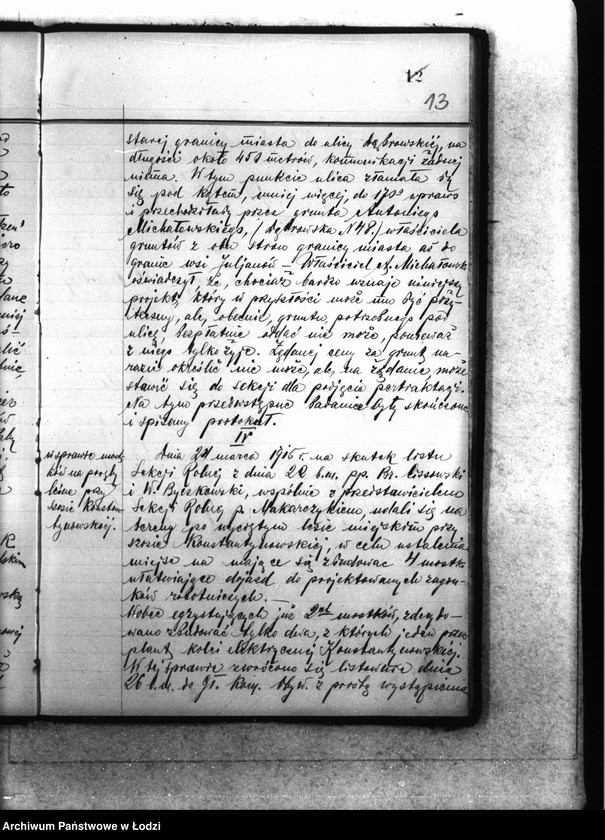 12
13
starej granicy miasta do ulicy Dąbrowskiej, na
długości około 450 metrów, komunikacji żadnej
niema. W tym punkcie ulica złamała by
się pod kątem, mniej więcej, do 170° wprawo
i przechodziłaby przez grunta Antoniego
Michałowskiego, /Dąbrowska N 48./ właściciela
gruntów z obu stron granicy miasta aż do
granic wsi Juljanów – Właściciel A. Michałowski
oświadczył, że, chociaż bardzo uznaje niniejszy
projekt, który w przyszłości może mu być poży-
teczny, ale, obecnie, gruntu, potrzebnego pod
ulicę, bezpłatnie oddać nie może, ponieważ
z niego tylko żyje. Żądanej ceny za grunt na-
razie określić nie może, ale, na żądanie może
stawić się do Sekcji dla podjęcia pertraktacji.
Na tym przedwstępne badanie były skończone
i spisany protokół.
IV
w sprawie most-
ków na
przy
szosie Konstan-
tynowskiej.
Dnia 24 marca 1916 r. na skutek listu
Sekcji Rolnej z dnia 20 b.m. pp. Br. Lissowski
i W. Byczkowski, wspólnie z przedstawicielem
Sekcji Rolnej p. Makarczykiem udali się na
tereny po wyciętym lesie miejskim przy
szosie Konstantynowskiej, w celu ustalenia
miejsc na mające się zbudować 4 mostki
ułatwiające dojazd do projektowanych zagon-
ków robotniczych. –
Wobec egzystujących już 2ch mostków, zdecydo-
wano zbudować tylko dwa, z których jeden przez
plant kolei elektrycznej Konstantynowskiej.
W tej sprawie zwrócono się listownie dnia
26 b.m. do Gł. Kom. Obyw. z prośbą wystąpienia
Archiwum Państwowe w Łodzi